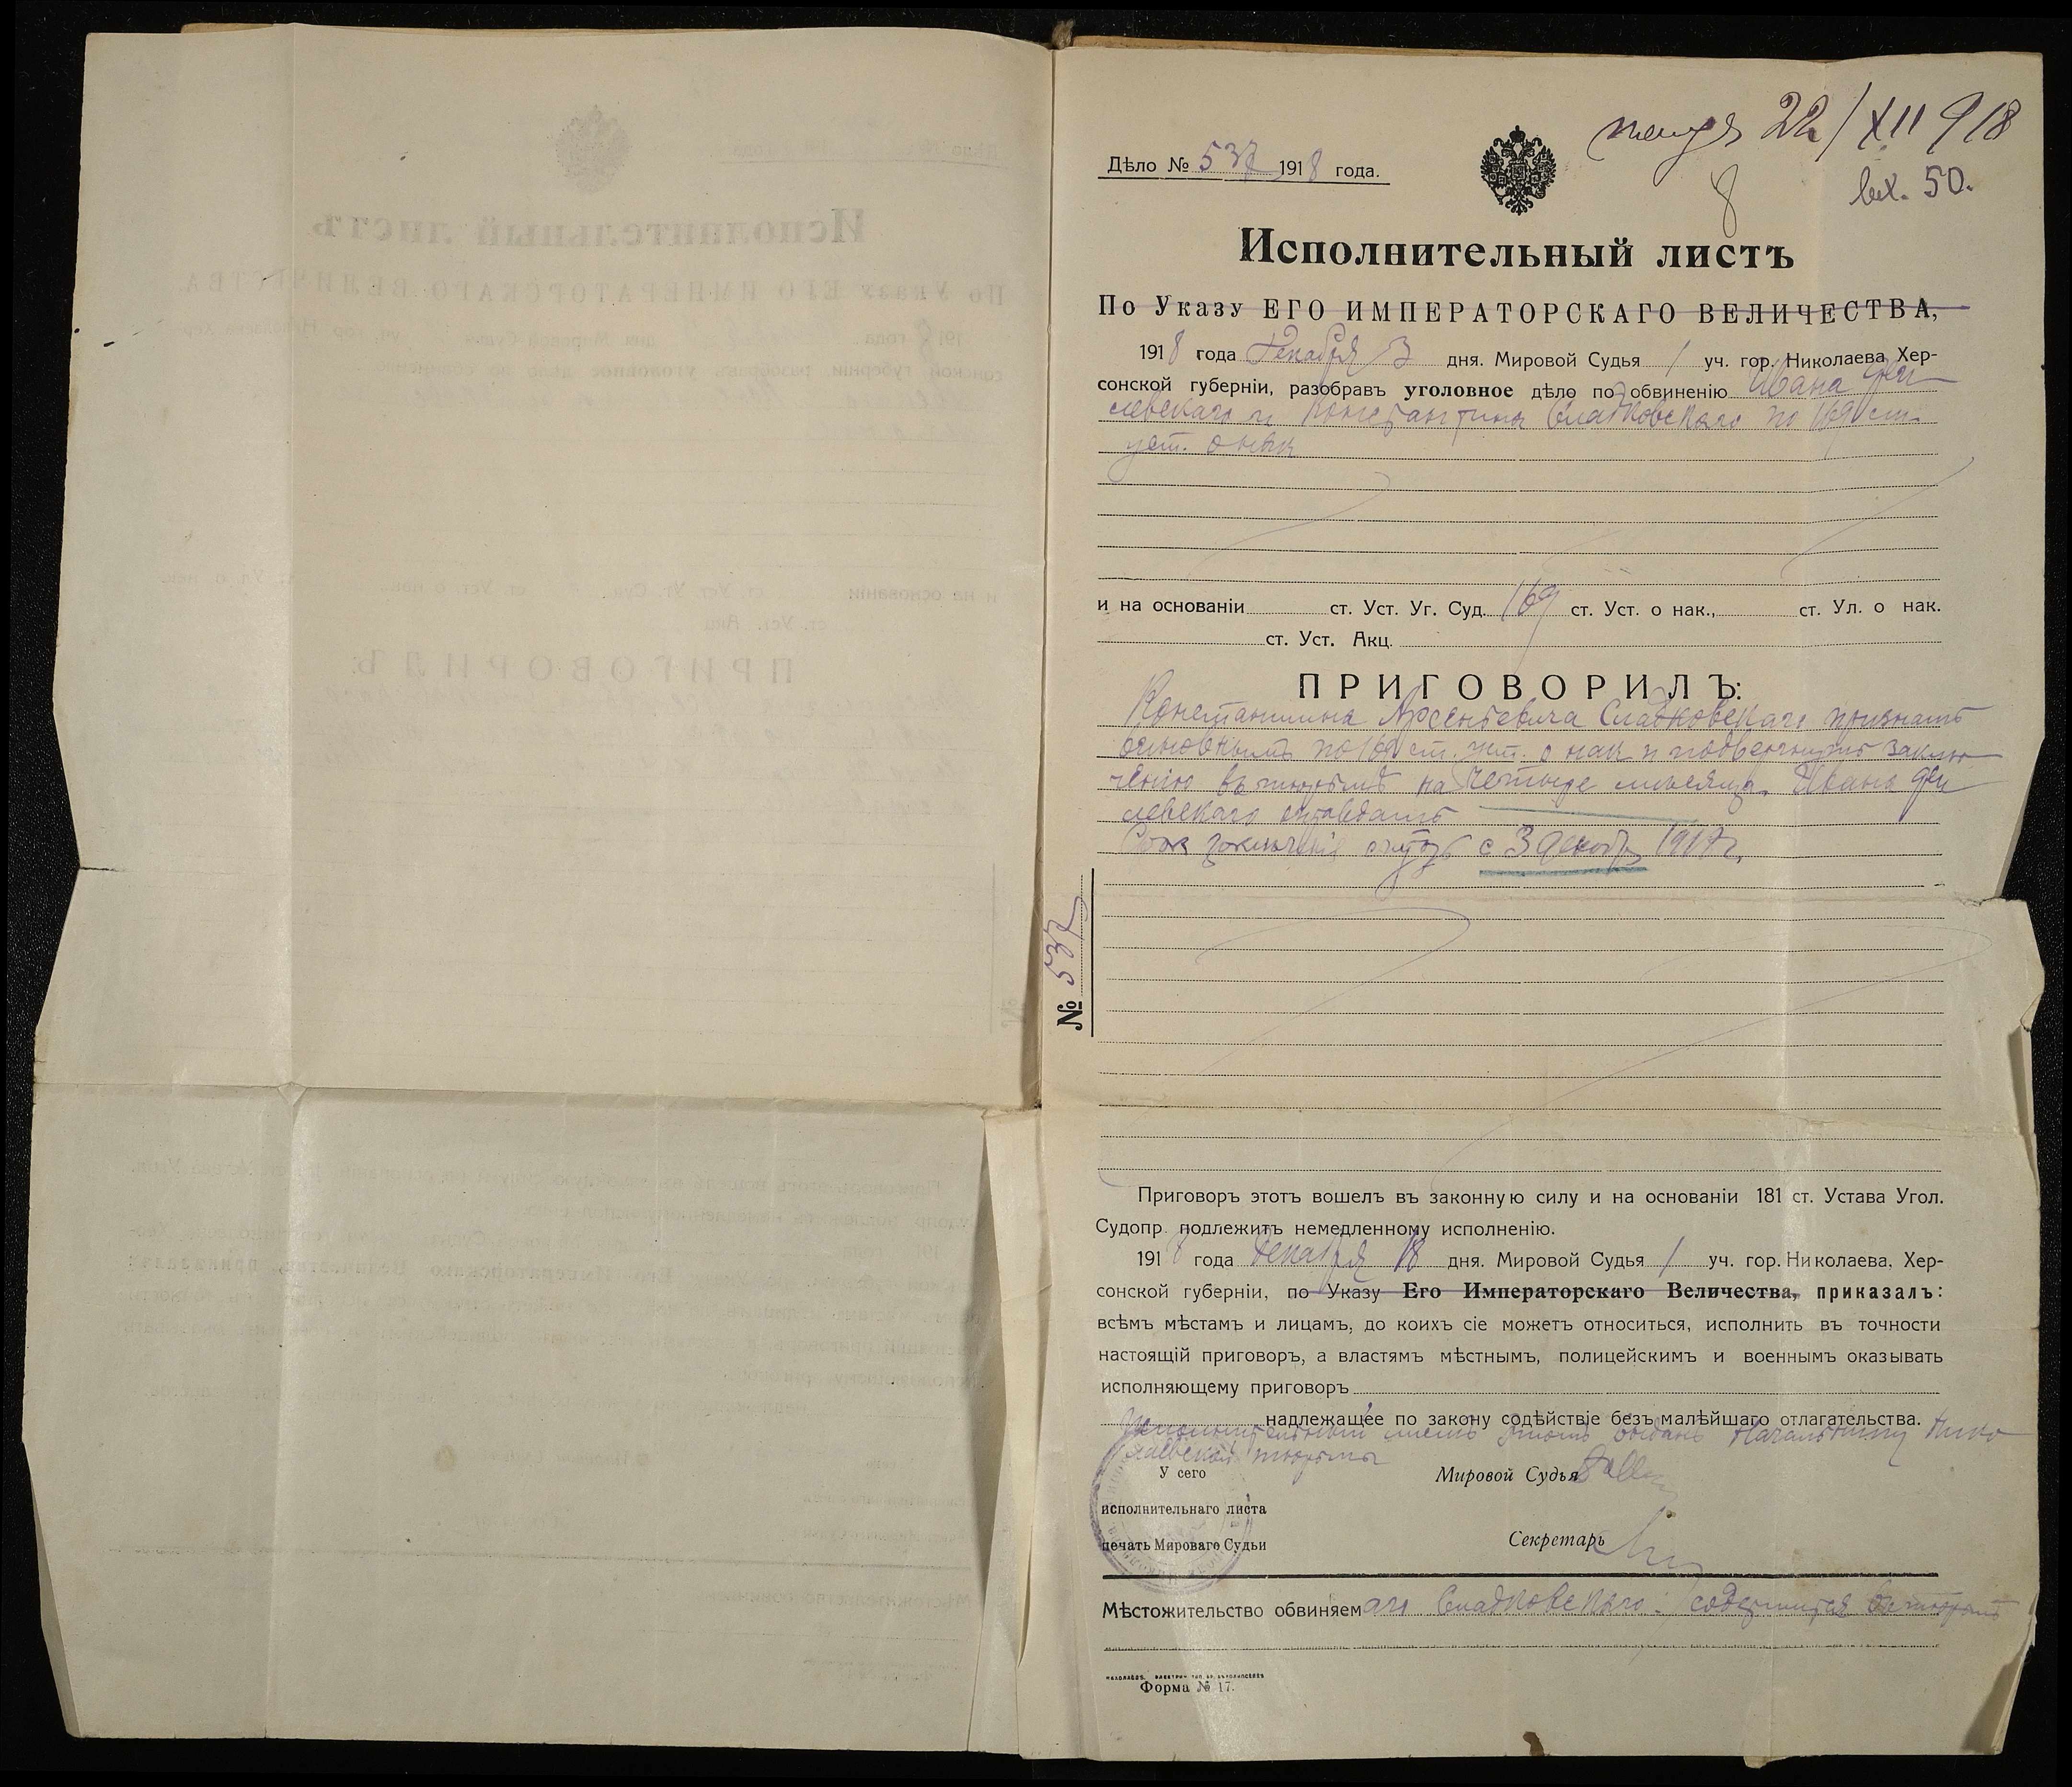 получ 22/XII 918
Дѣло № 537 1918 года.
8
вх. 50.
Исполнительный листъ
По Указу ЕГО ИМПЕРАТОРСКАГО ВЕЛИЧЕСТВА,
1918 года Декабря 3 дня. Мировой Судья 1 уч. гор. Николаева, Хер-
сонской губерніи, разобравъ уголовное дѣло по обвиненію Ивана
левскаго и Константина Сладковскаго по 169 ст.
уст. о нак
и на основаніи ст. Уст. Уг. Суд. 169 ст. Уст. о нак., ст. Ул. о нак.
ст. Уст. Акц.
ПРИГОВОРИЛЪ:
Константина Арсентьевича Сладковскаго признать
виновнымъ по 169 ст. уст. о нак и подвергнуть заклю
ченію въ тюрьмѣ на четыре мѣсяца. Ивана
левскаго оправдать
Срок заключенія считать с 3 декабр 1918 г.
№ 537
Приговоръ этотъ вошелъ въ законную силу и на основаніи 181 ст. Устава Угол.
Судопр. подлежитъ немедленному исполненію.
1918 года Декабря 18 дня. Мировой Судья 1 уч. гор. Николаева, Хер-
сонской губерніи, по Указу Его Императорскаго Величества, приказалъ:
всѣмъ мѣстамъ и лицамъ, до коихъ сіе можетъ относиться, исполнить въ точности
настоящій приговоръ, а властямъ мѣстнымъ, полицейскимъ и военнымъ оказывать
исполняющему приговоръ
надлежащее по закону содѣйствіе безъ малѣйшаго отлагательства.
Исполнительный листъ этотъ выданъ Начальнику Нико
лаевской тюрьмы
У сего
исполнительнаго листа
печать Мироваго Судьи
Мировой Судья
Секретарь
Мѣстожительство обвиняемаго Сладковскаго: содержится въ тюрьмѣ
Форма № 17.